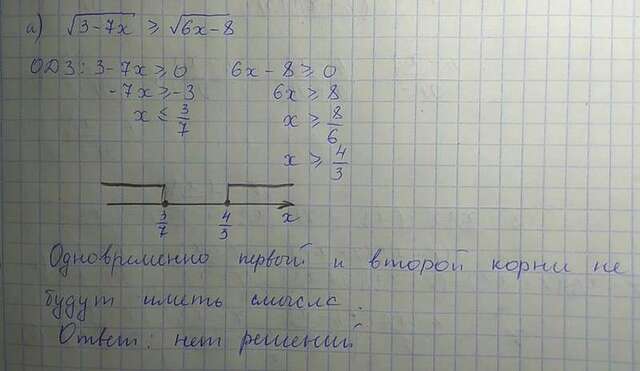 а) √(3-7x) ≥ √(6x-8)
ОДЗ: 3-7x ≥ 0   6x-8 ≥ 0
-7x ≥ -3   6x ≥ 8
x ≤ 3/7   x ≥ 8/6
x ≥ 4/3
3/7   4/3   x
Одновременно первый и второй корни не
будут иметь смысла.
Ответ: нет решений